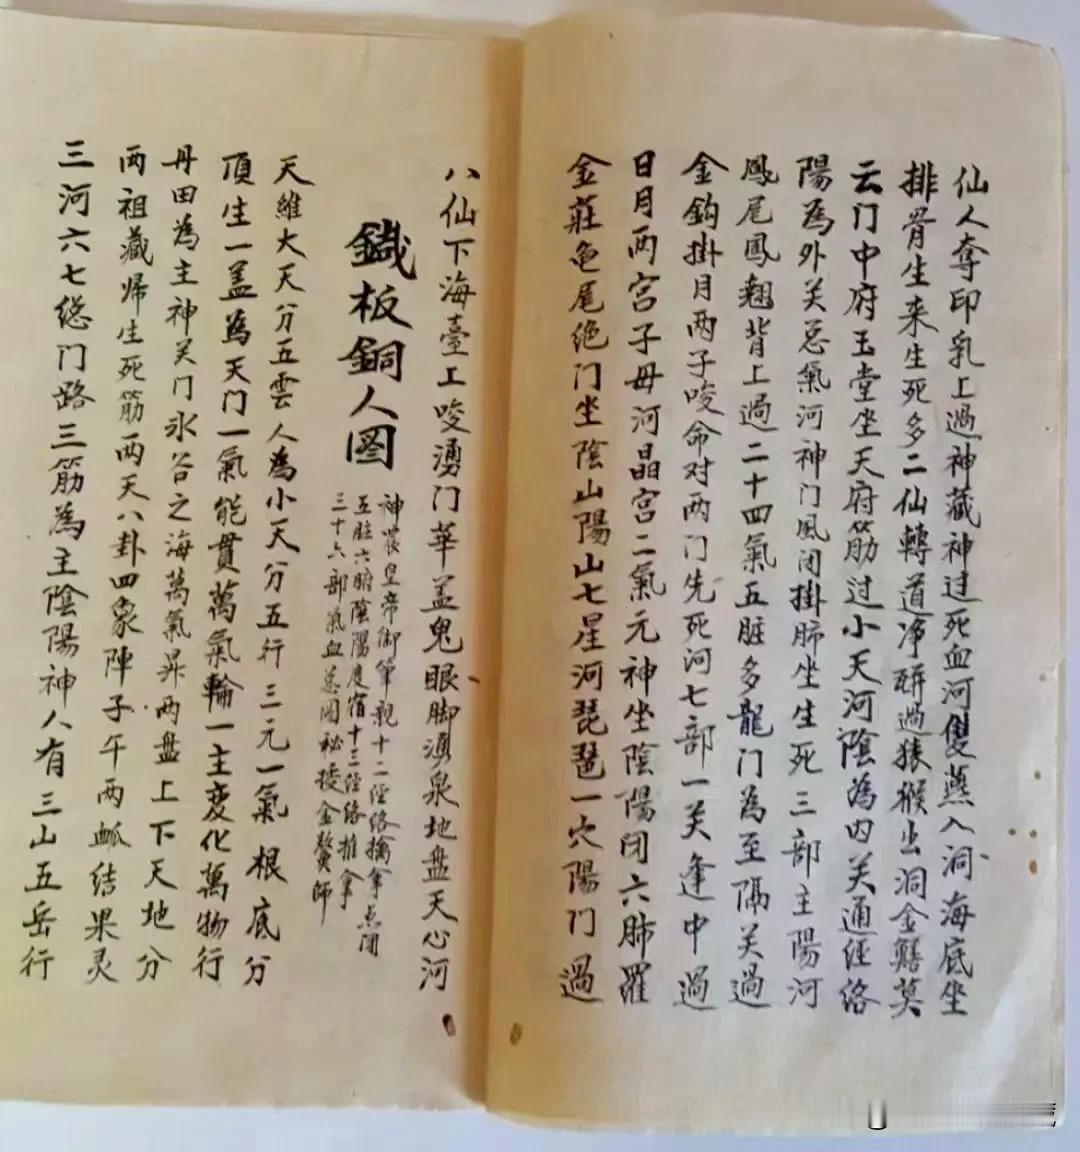 仙人夺印乳上過神藏神过死血河雙燕入洞海底坐
排骨生来生死多二仙轉道净瓶過猿猴出洞金鱔莫
云门中府玉堂坐天府筋过小天河陰為内关通经络
陽為外关总氣河神门風闭掛肺坐生死三部主陽河
鳳尾鳳翹背上過二十四氣五脏多龍门為至隔关過
金鈎掛月两子唆命对两门先死河七部一关逢中過
日月两宫子母河晶宫二氣元神坐陰陽闭六肺羅
金莊龟尾绝门坐陰山陽山七星河琵琶一穴陽门過
八仙下海臺工唆湧门華盖鬼眼脚湧泉地盘天心河
鐵板銅人图
神農皇帝御筆親十二经络擒拿点闭
五脏六腑陰陽度宿十三经络推拿
三十六部氣血总图秘授金鰲師
天維大天分五雲人為小天分五行三元一氣根底分
頂生一盖為天门一氣能貫萬氣輪一主变化萬物行
丹田為主神关门水谷之海萬氣昇两盘上下天地分
两祖藏歸生死筋两天八卦四象陣子午两血结果灵
三河六七总门路三筋為主陰陽神人有三山五岳行